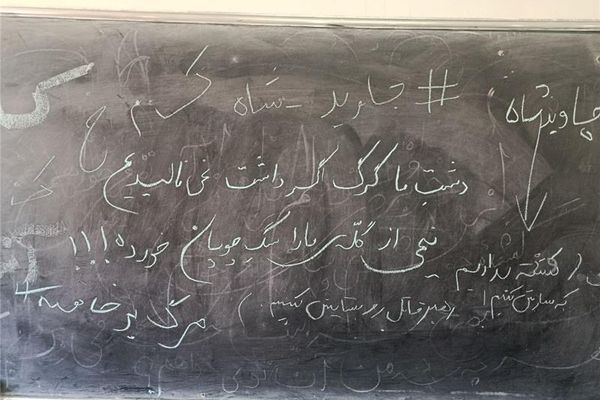 # جاوید_شاه
جاوید شاه
دشتِ ما گرگ اگر داشت نمی‌نالیدیم
نیمی از گله‌ی ما را سگِ چوپان خورده!!!
(کشته ندادیم
که سازش کنیم!
رهبر قاتل رو ستایش کنیم.)
مرگ بر خامنه